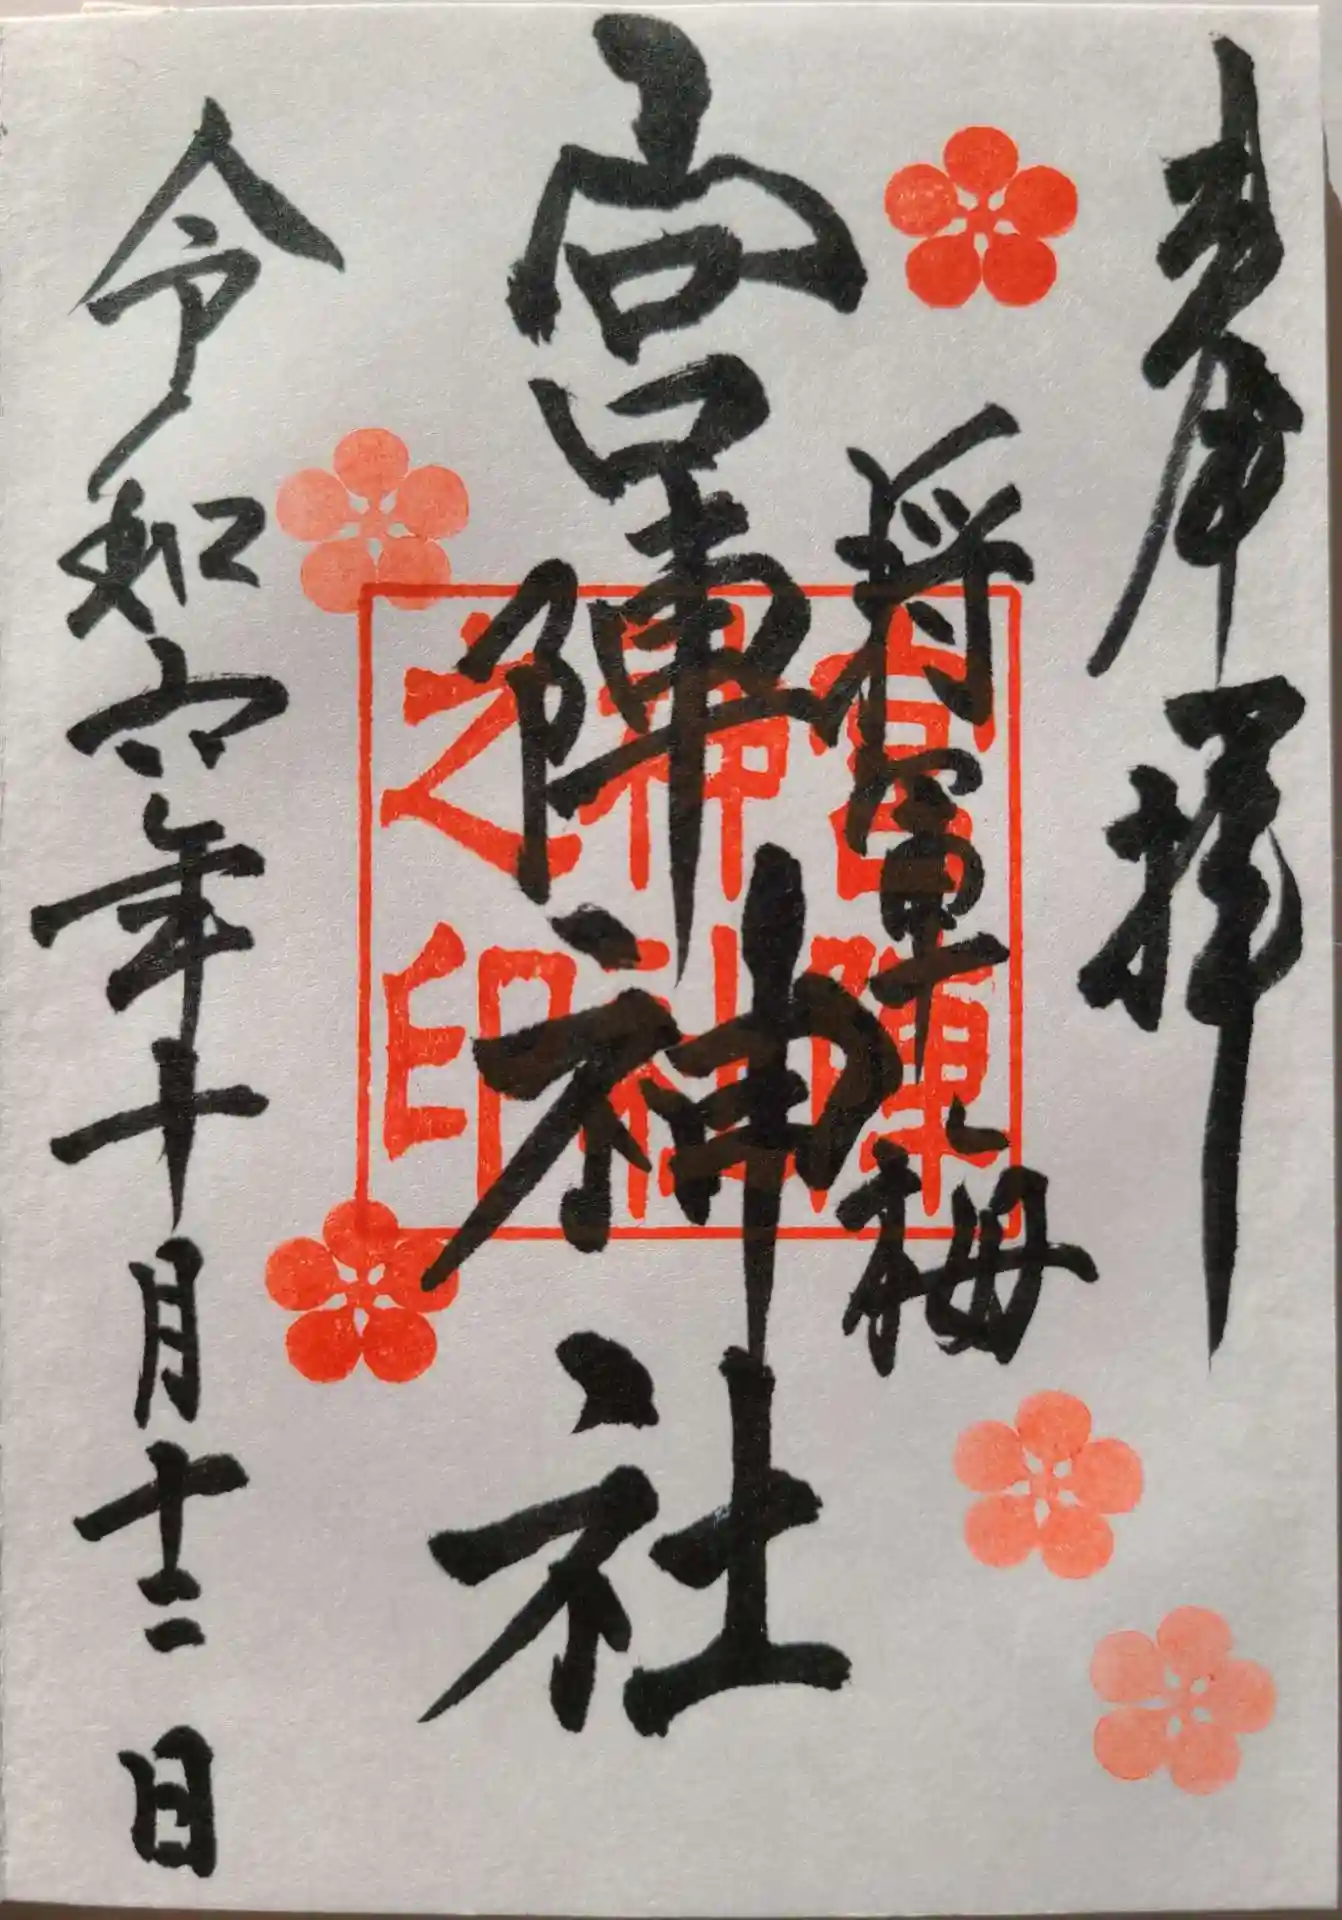 奉拝
将軍梅
宮陣神社
令和六年十月十二日
宮陣
神社
之印